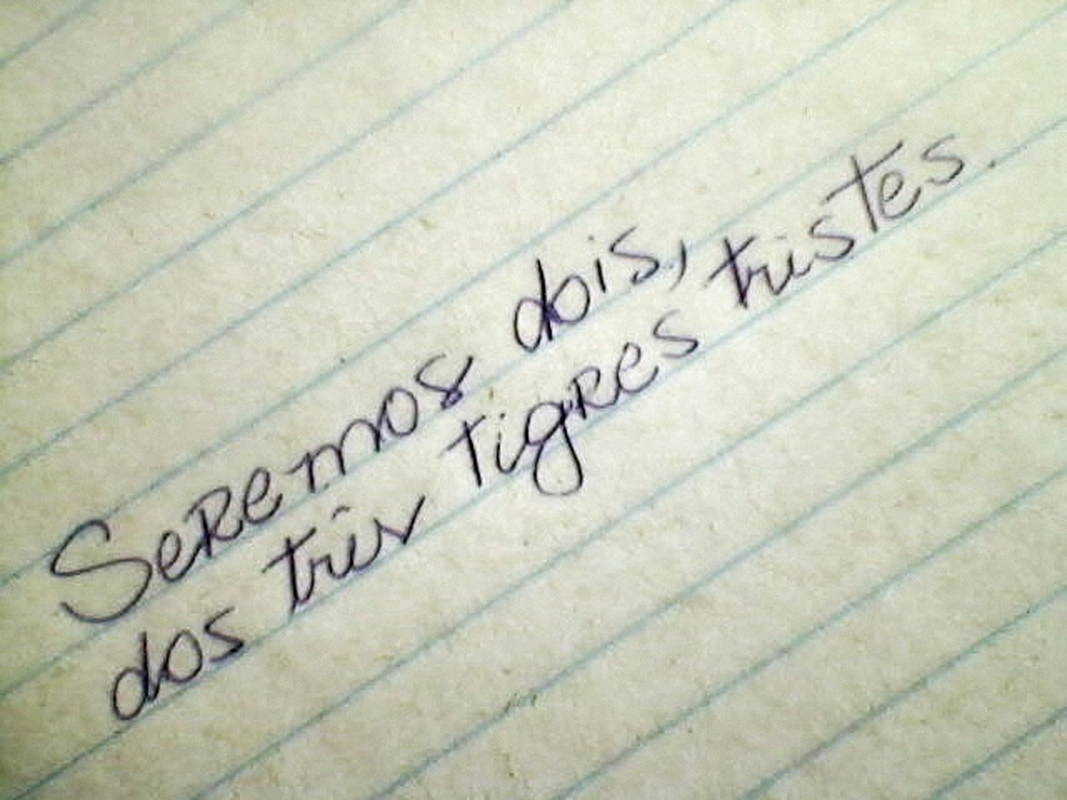 Seremos dois,
dos três tigres tristes.